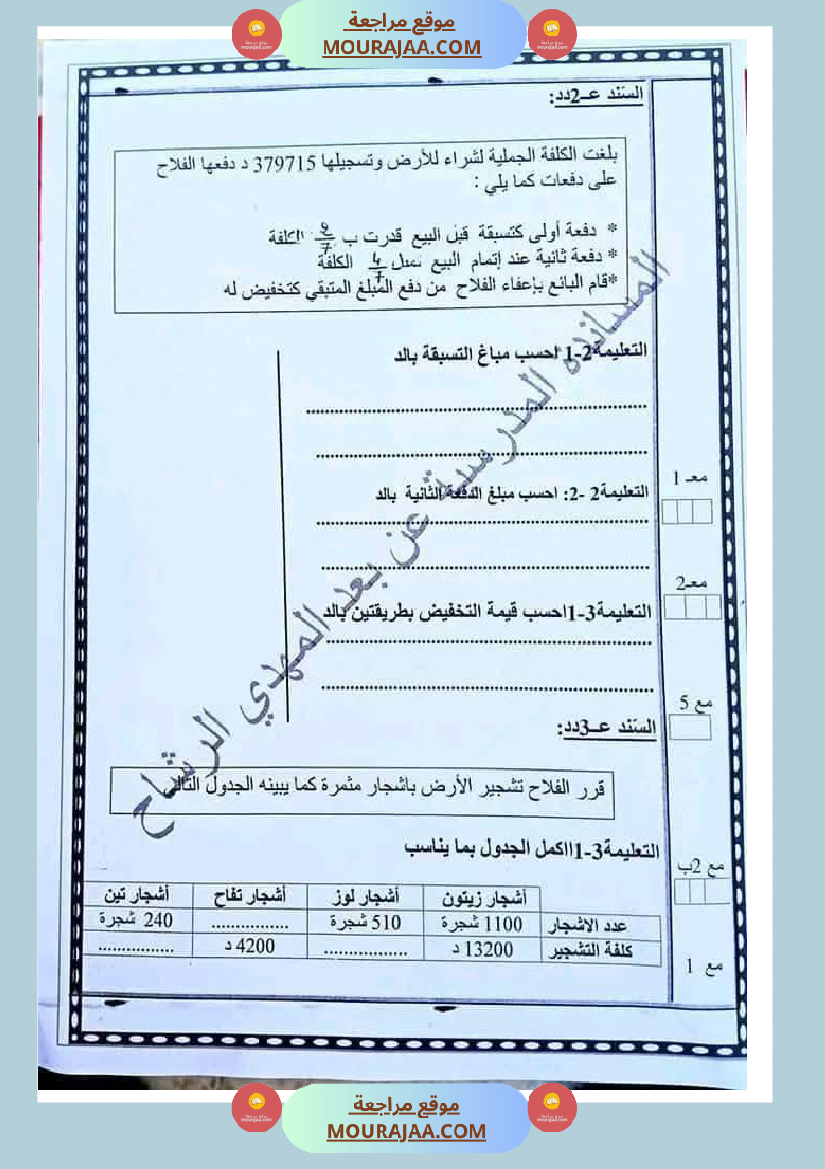 موقع مراجعة
MOURAJAA.COM
السند عــ2دد:
بلغت الكلفة الجملية لشراء للأرض وتسجيلها 379715 د دفعها الفلاح
على دفعات كما يلي :
* دفعة أولى كتسبقة قبل البيع قدرت ب الكلفة
* دفعة ثانية عند إتمام البيع تمثل 4/7 الكلفة
*قام البائع بإعفاء الفلاح من دفع المبلغ المتبقي كتخفيض له
التعليمة2-1 احسب مباغ التسبقة بالد
معـ 1
التعليمة2 -2: احسب مبلغ الدفعة الثانية بالد
معـ2
التعليمة3-1احسب قيمة التخفيض بطريقتين بالد
مع 5
السند عــ3دد:
قرر الفلاح تشجير الأرض باشجار مثمرة كما يبينه الجدول التالي
التعليمة3-1ااكمل الجدول بما يناسب
مع 2ب
أشجار زيتون أشجار لوز أشجار تفاح أشجار تين
عدد الاشجار 1100 شجرة 510 شجرة ................ 240 شجرة
كلفة التشجير 13200 د ................ 4200 د ................
مع 1
المساندة المدرسية عن بعد المهدي الرشاح
موقع مراجعة
MOURAJAA.COM